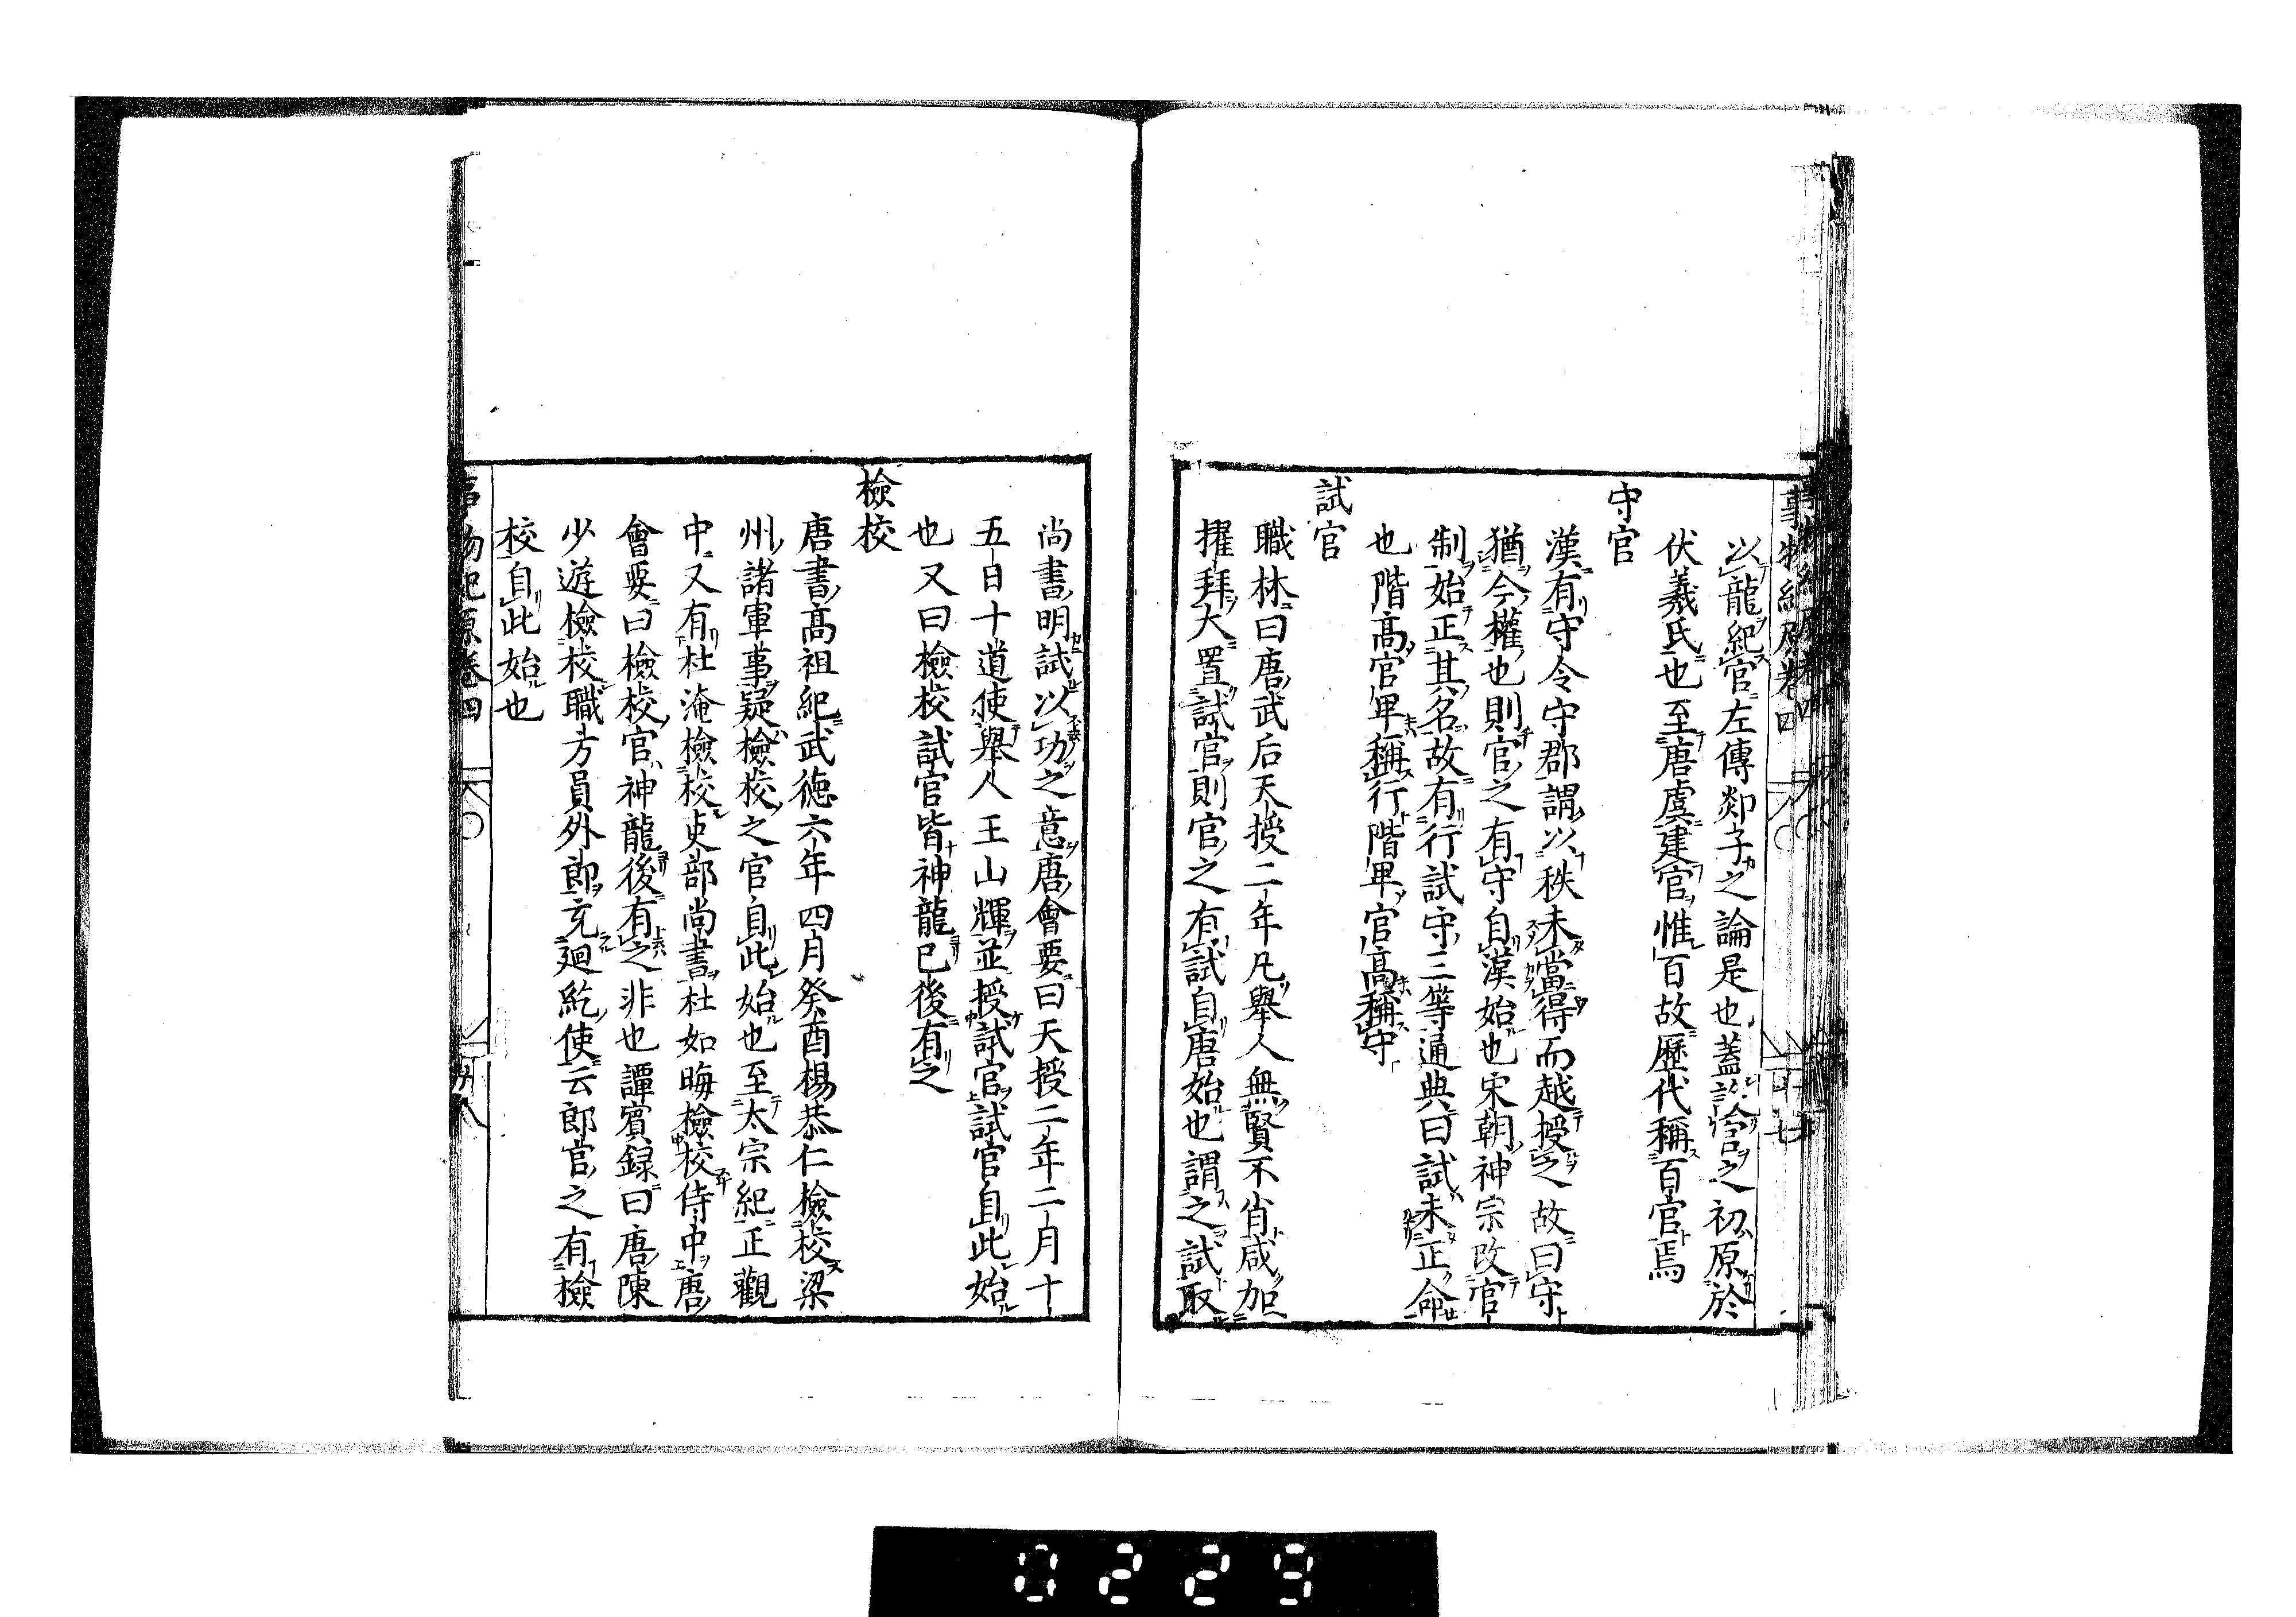 事物紀原卷四
以龍紀官左傳郯子之論是也蓋設官之初原於
伏羲氏也至唐虞建官惟百故歷代稱百官焉
守官
漢有守令守郡謂以秩未當得而越授之故曰守
猶今權也則官之有守自漢始也宋朝神宗改官
制始正其名故有行試守三等通典曰試未正命
也階高官卑稱行階卑官高稱守
試官
職林曰唐武后天授二年凡舉人無賢不肖咸加
擢拜大置試官則官之有試自唐始也謂之試取
尚書明試以功之意唐會要曰天授二年二月十
五日十道使舉人王山輝並授試官試官自此始
也又曰檢校試官皆神龍已後有之
檢校
唐書高祖紀武德六年四月癸酉楊恭仁檢校梁
州諸軍事疑檢校之官自此始也至太宗紀正觀
中又有杜淹檢校吏部尚書杜如晦檢校侍中唐
會要曰檢校官神龍後有之非也譚賓録曰唐陳
少遊檢校職方員外郎充廻紇使云郎官之有檢
校自此始也
事物紀原卷四
0229